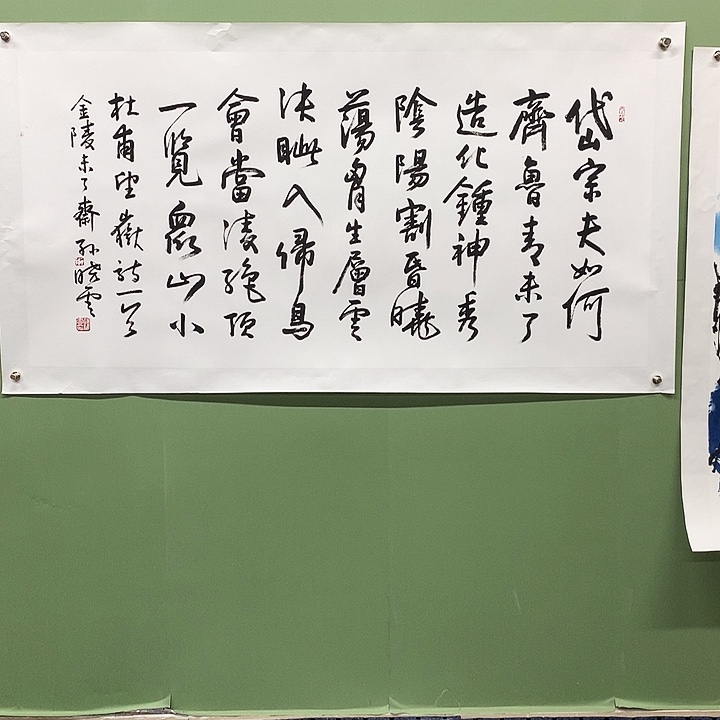 岱宗夫如何
齊魯青未了
造化鍾神秀
陰陽割昏曉
蕩胷生層雲
決眦入歸鳥
會當淩絶頂
一覽衆山小
杜甫望嶽詩一首
金陵未了齋孙晓雲